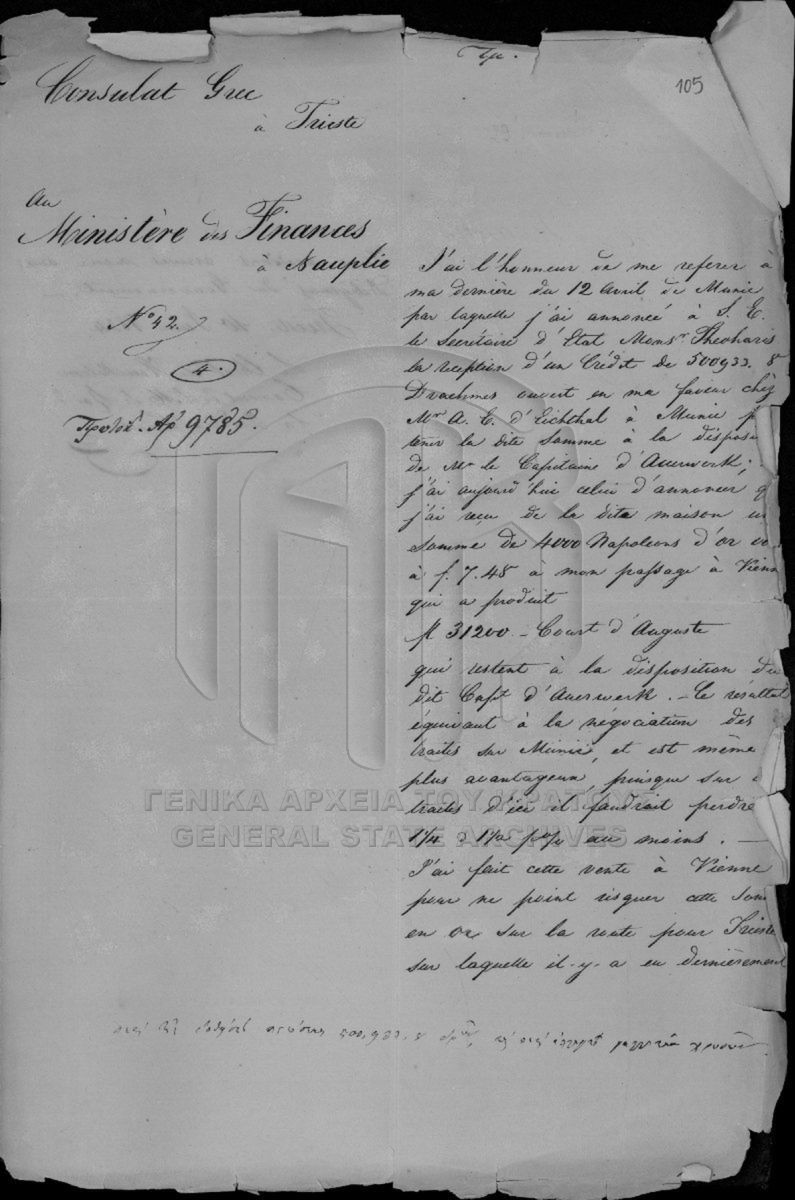 105
Consulat Grec
à Trieste
Au
Ministère des Finances
à Nauplie
No 42.
4.
Πρωτ. Αρ 9785.
J'ai l'honneur de me referer à
ma dernière du 12 Avril de Munic
par laquelle j'ai annoncé à S. E.
le Secrétaire d'Etat Monsr Theoharis
la reception d'un Crédit de 500933. 8
Drachmes ouvert en ma faveur chèz
Mr A. E. d'Eichthal à Munic p
tenir la dite somme à la disposi
de Mr le Capitaine d'Auerwerk;
j'ai aujourd'hui celui d'annoncer q
j'ai reçu de la dite maison un
somme de 4000 Napoleons d'or
à f. 7.48 à mon passage à Vienn
qui a produit
fl 31200 - Court d'Auguste
qui restent à la disposition du
dit Capt d'Auerwerk. - Le résultat
équivaut à la négociation des
traites sur Munic, et est même
plus avantageux, puisque sur
traites d'ici il faudrait perdre
1 1/4 à 1 1/2 p% au moins. —
J'ai fait cette vente à Vienne
pour ne point risquer cette som
en or sur la route pour Trieste
sur laquelle il-y-a eu dernièrement
500,933. 8
ΓΕΝΙΚΑ ΑΡΧΕΙΑ ΤΟΥ ΚΡΑΤΟΥΣ
GENERAL STATE ARCHIVES